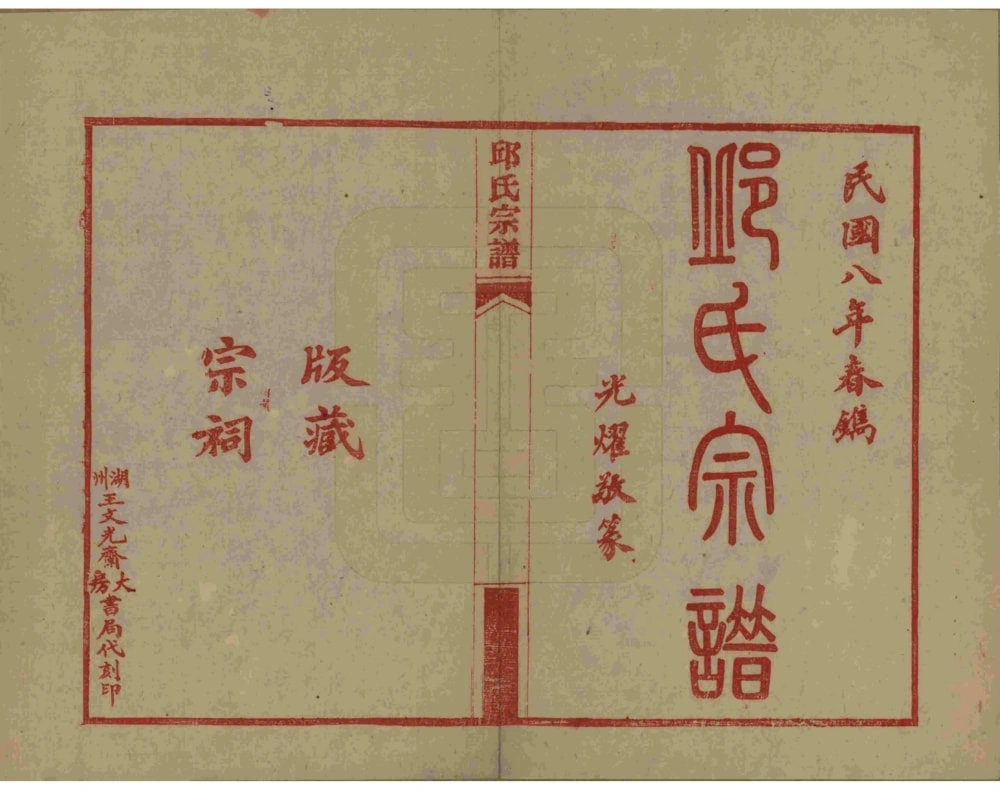 民國八年春鐫
邱氏宗譜
光燿敬篆
邱氏宗譜
版藏
宗祠
湖州王文光齋大房書局代刻印